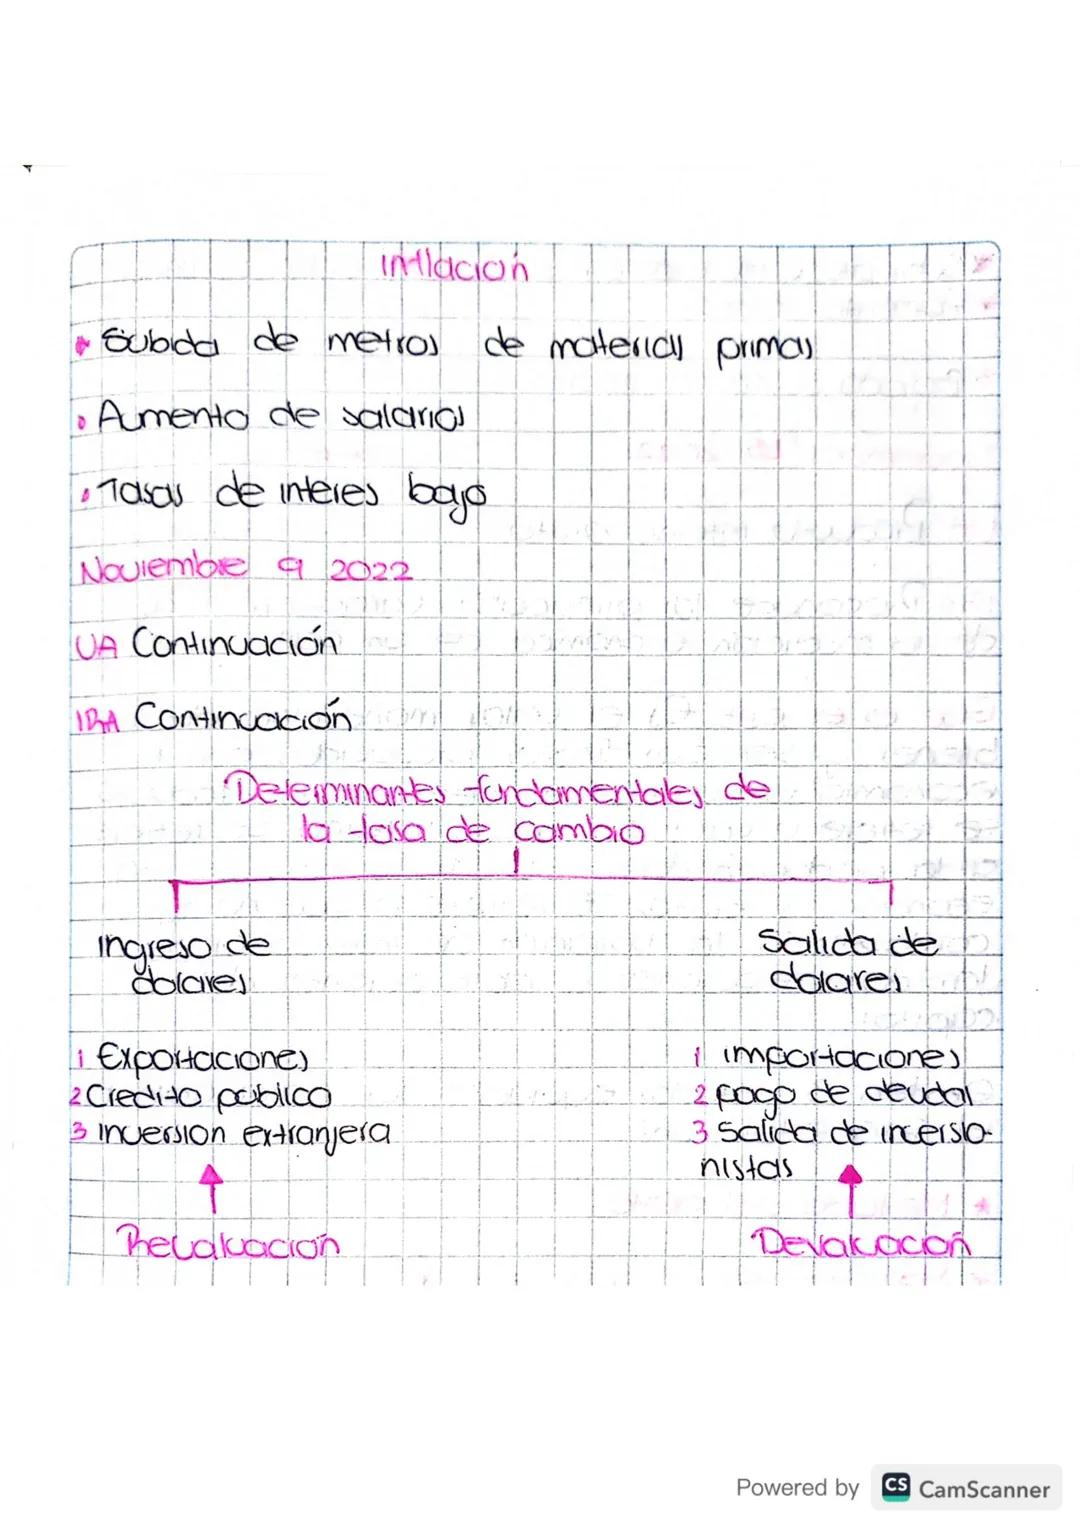 Inflación
Subida de metros de materias primas
Aumento de salarios
Tasas de interes bajo
Noviembre 9 2022
UA Continuación
IDA Continuación
Determinantes fundamentales de
la tasa de cambio
Ingreso de
dolares
Salida de
dolares
1 Exportaciones
2 Credito publico
3 Inversion extranjera
1 importaciones
2 pago de deudal
3 Salida de inversio-
nistas
Revaluación
Devaluación
Powered by CS CamScanner